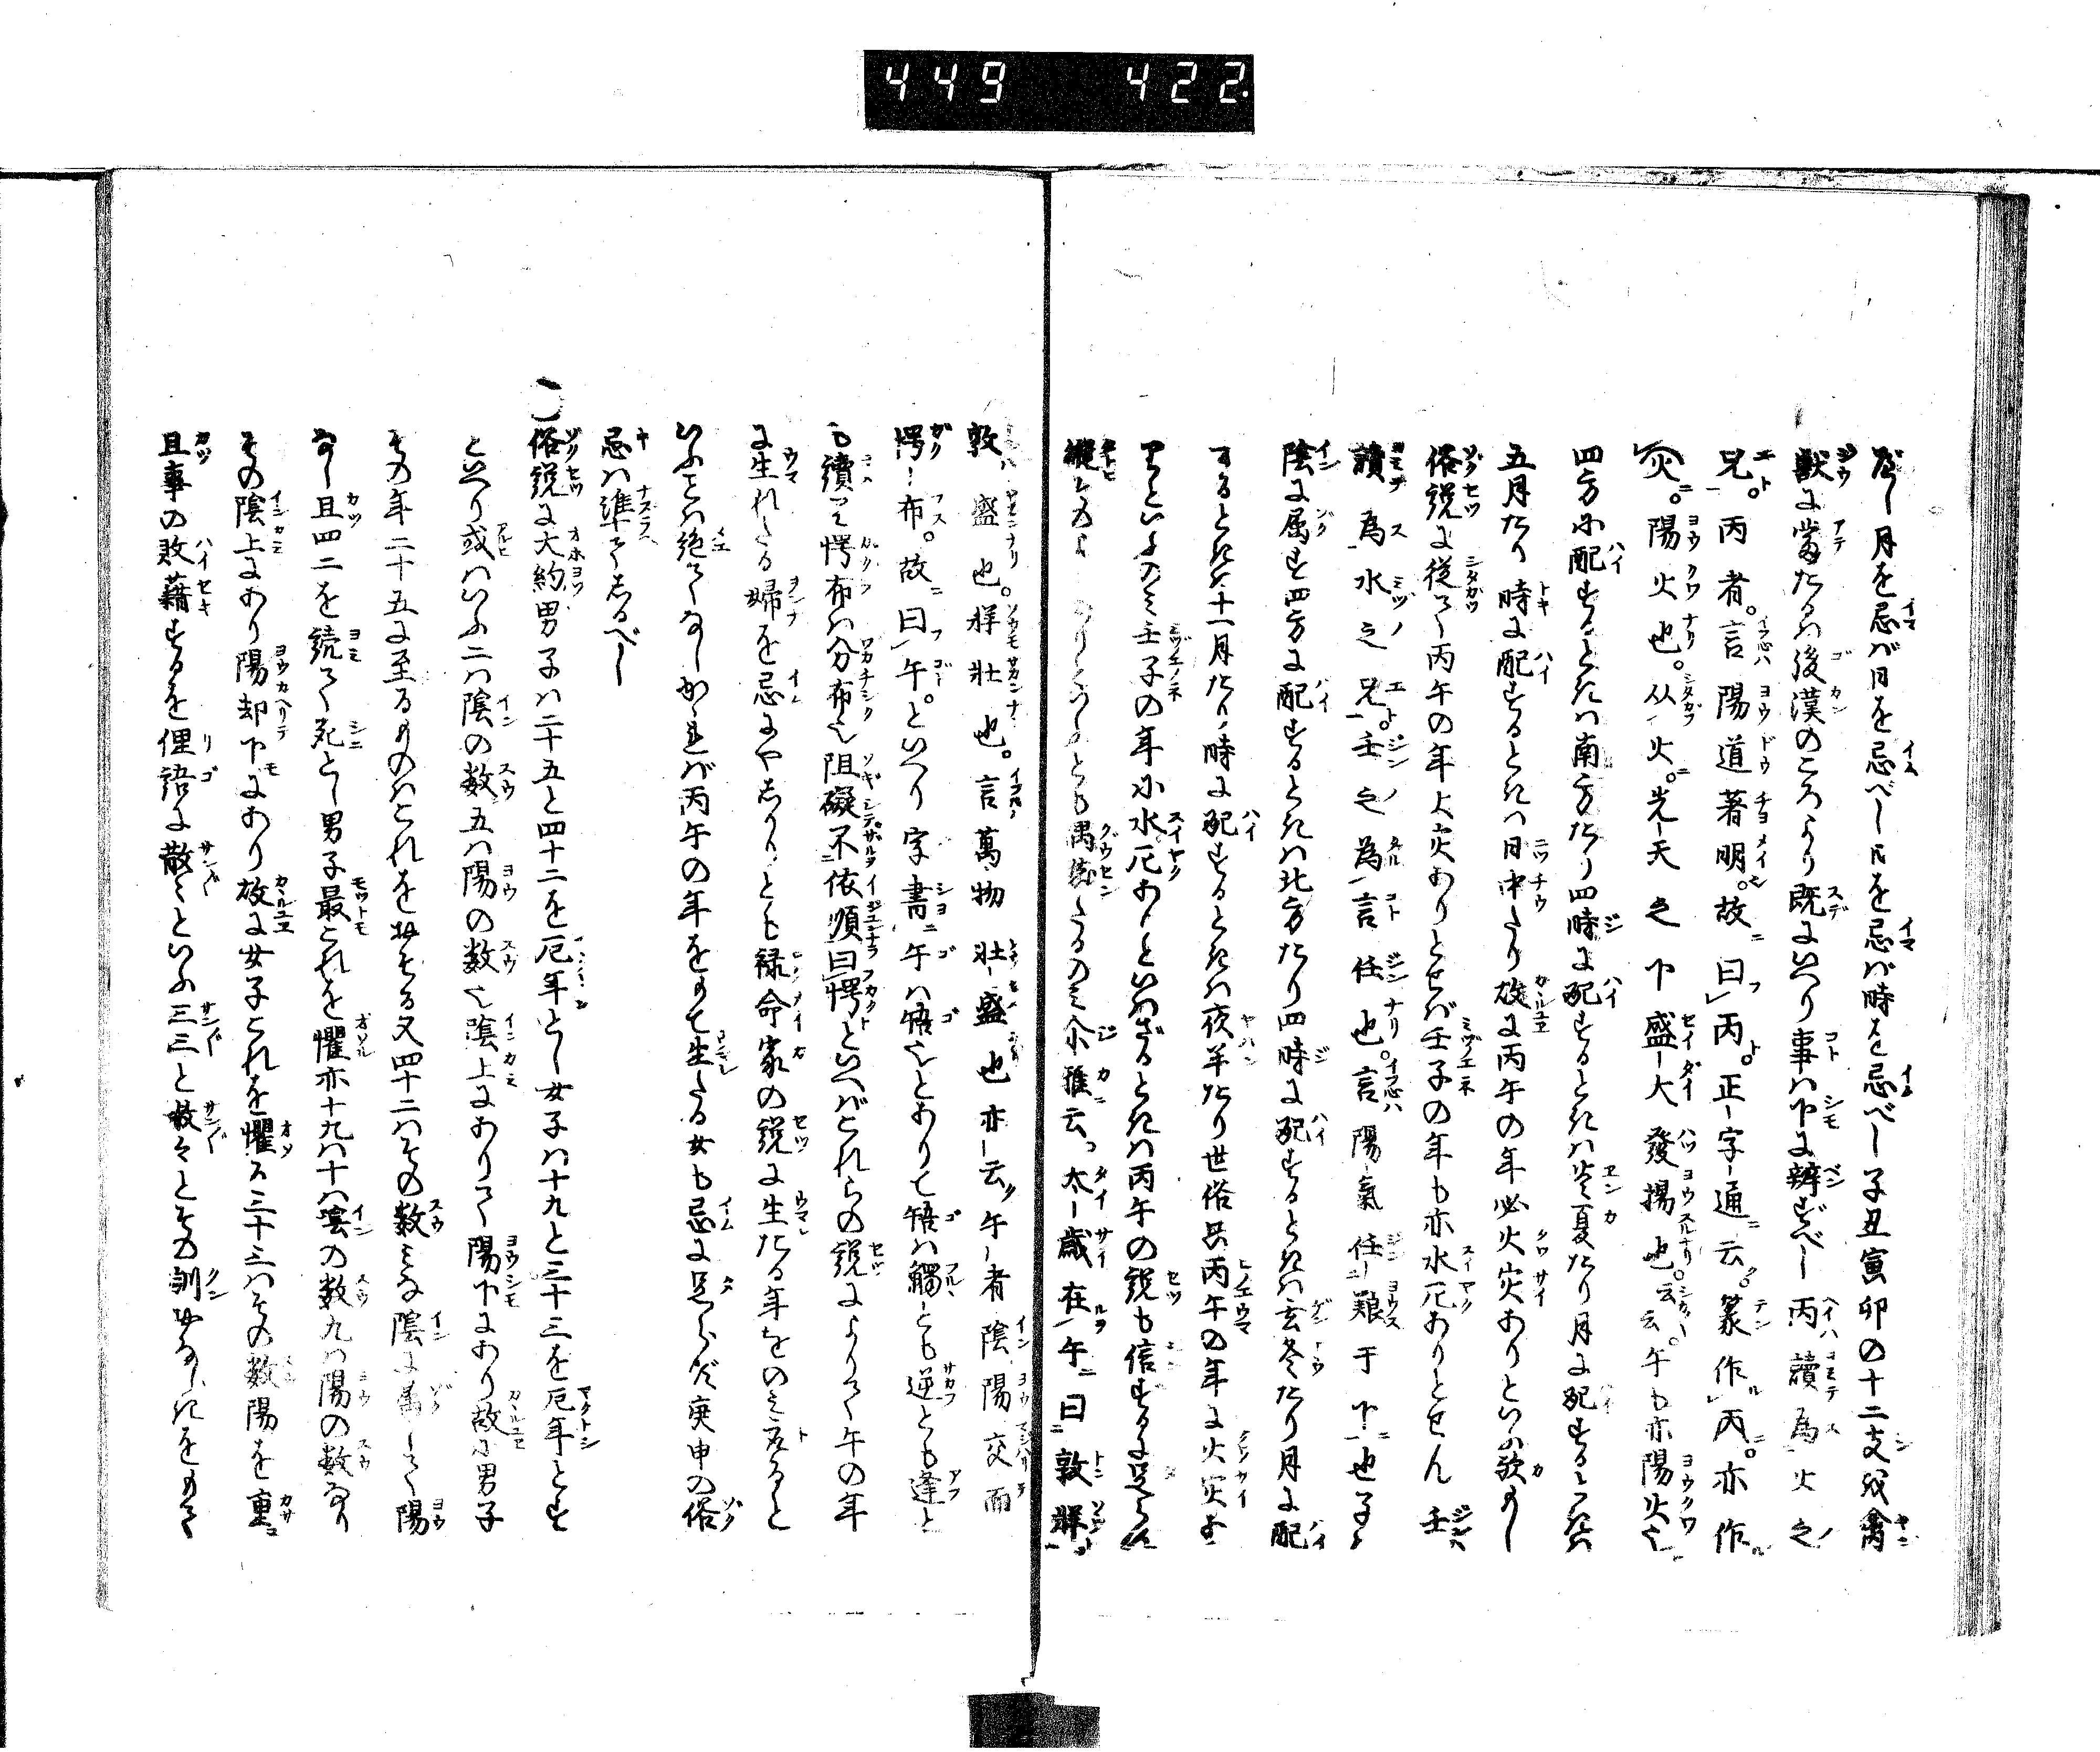 449 422.
ぞ〳〵月を忌バ日を忌べし日を忌バ時を忌べし子丑寅卯の十二支を禽
獣に當たるハ後漢のころより既にいへり事ハ下に辨ずべし丙讀為火之
兄。丙者。言陽道著明。故曰丙。正字通云。篆作丙。亦作
灾。陽火也。从火。光天之下盛大發揚也。云云。午も亦陽火也
四方に配するときハ南方たり四時に配するときハ炎夏たり月に配するときハ
五月たり時に配するときハ日中たり故に丙午の年必火災ありといふ歟もし
俗説に従て丙午の年火災ありとせバ壬子の年も亦水厄ありとせん壬
讀為水之兄。壬之為言任也。言陽氣任養于下也子ハ
陰に属す四方に配するときハ北方たり四時に配するときハ玄冬たり月に配
するときハ十一月たり時に配するときハ夜半たり世俗只丙午の年に火災お
りといふのミ壬子の年に水厄ありといハざるときハ丙午の説も信ずるに足らん
縦その ありといふとも偶然たるのミ尓雅云。太歳在午曰敦牂。
敦盛也。牂壮也。言萬物壮盛也亦云午者陰陽交而
愕布。故曰午。といへり字書午ハ牾也とありて牾ハ觸とも逆とも逢と
も讀て愕布ハ分布也阻礙不依順曰愕といへバこれらの説によりて午の年
に生れたる婦を忌にやあらんとも禄命家の説に生たる年をのミ取ると
いふことハ絶てなしかゝれバ丙午の年をもて生たる女も忌に足らず庚申の俗
忌ハ準てしるべし
俗説に大約男子ハ二十五と四十二を厄年とし女子ハ十九と三十三を厄年とす
といへり或ハいふ二ハ陰の数五ハ陽の数也陰上にありて陽下にあり故に男子
その年二十五に至るものハこれをおそる又四十二ハその数ミな陰に属して陽
なし且四二を続て死とし男子最これを懼亦十九ハ十ハ陰の数九ハ陽の数なり
その陰上にあり陽却下にあり故に女子これを懼る三十三ハその数陽を重
且事の敗藉するを俚語に散々といふ三三と散々とその訓おなじきをもて